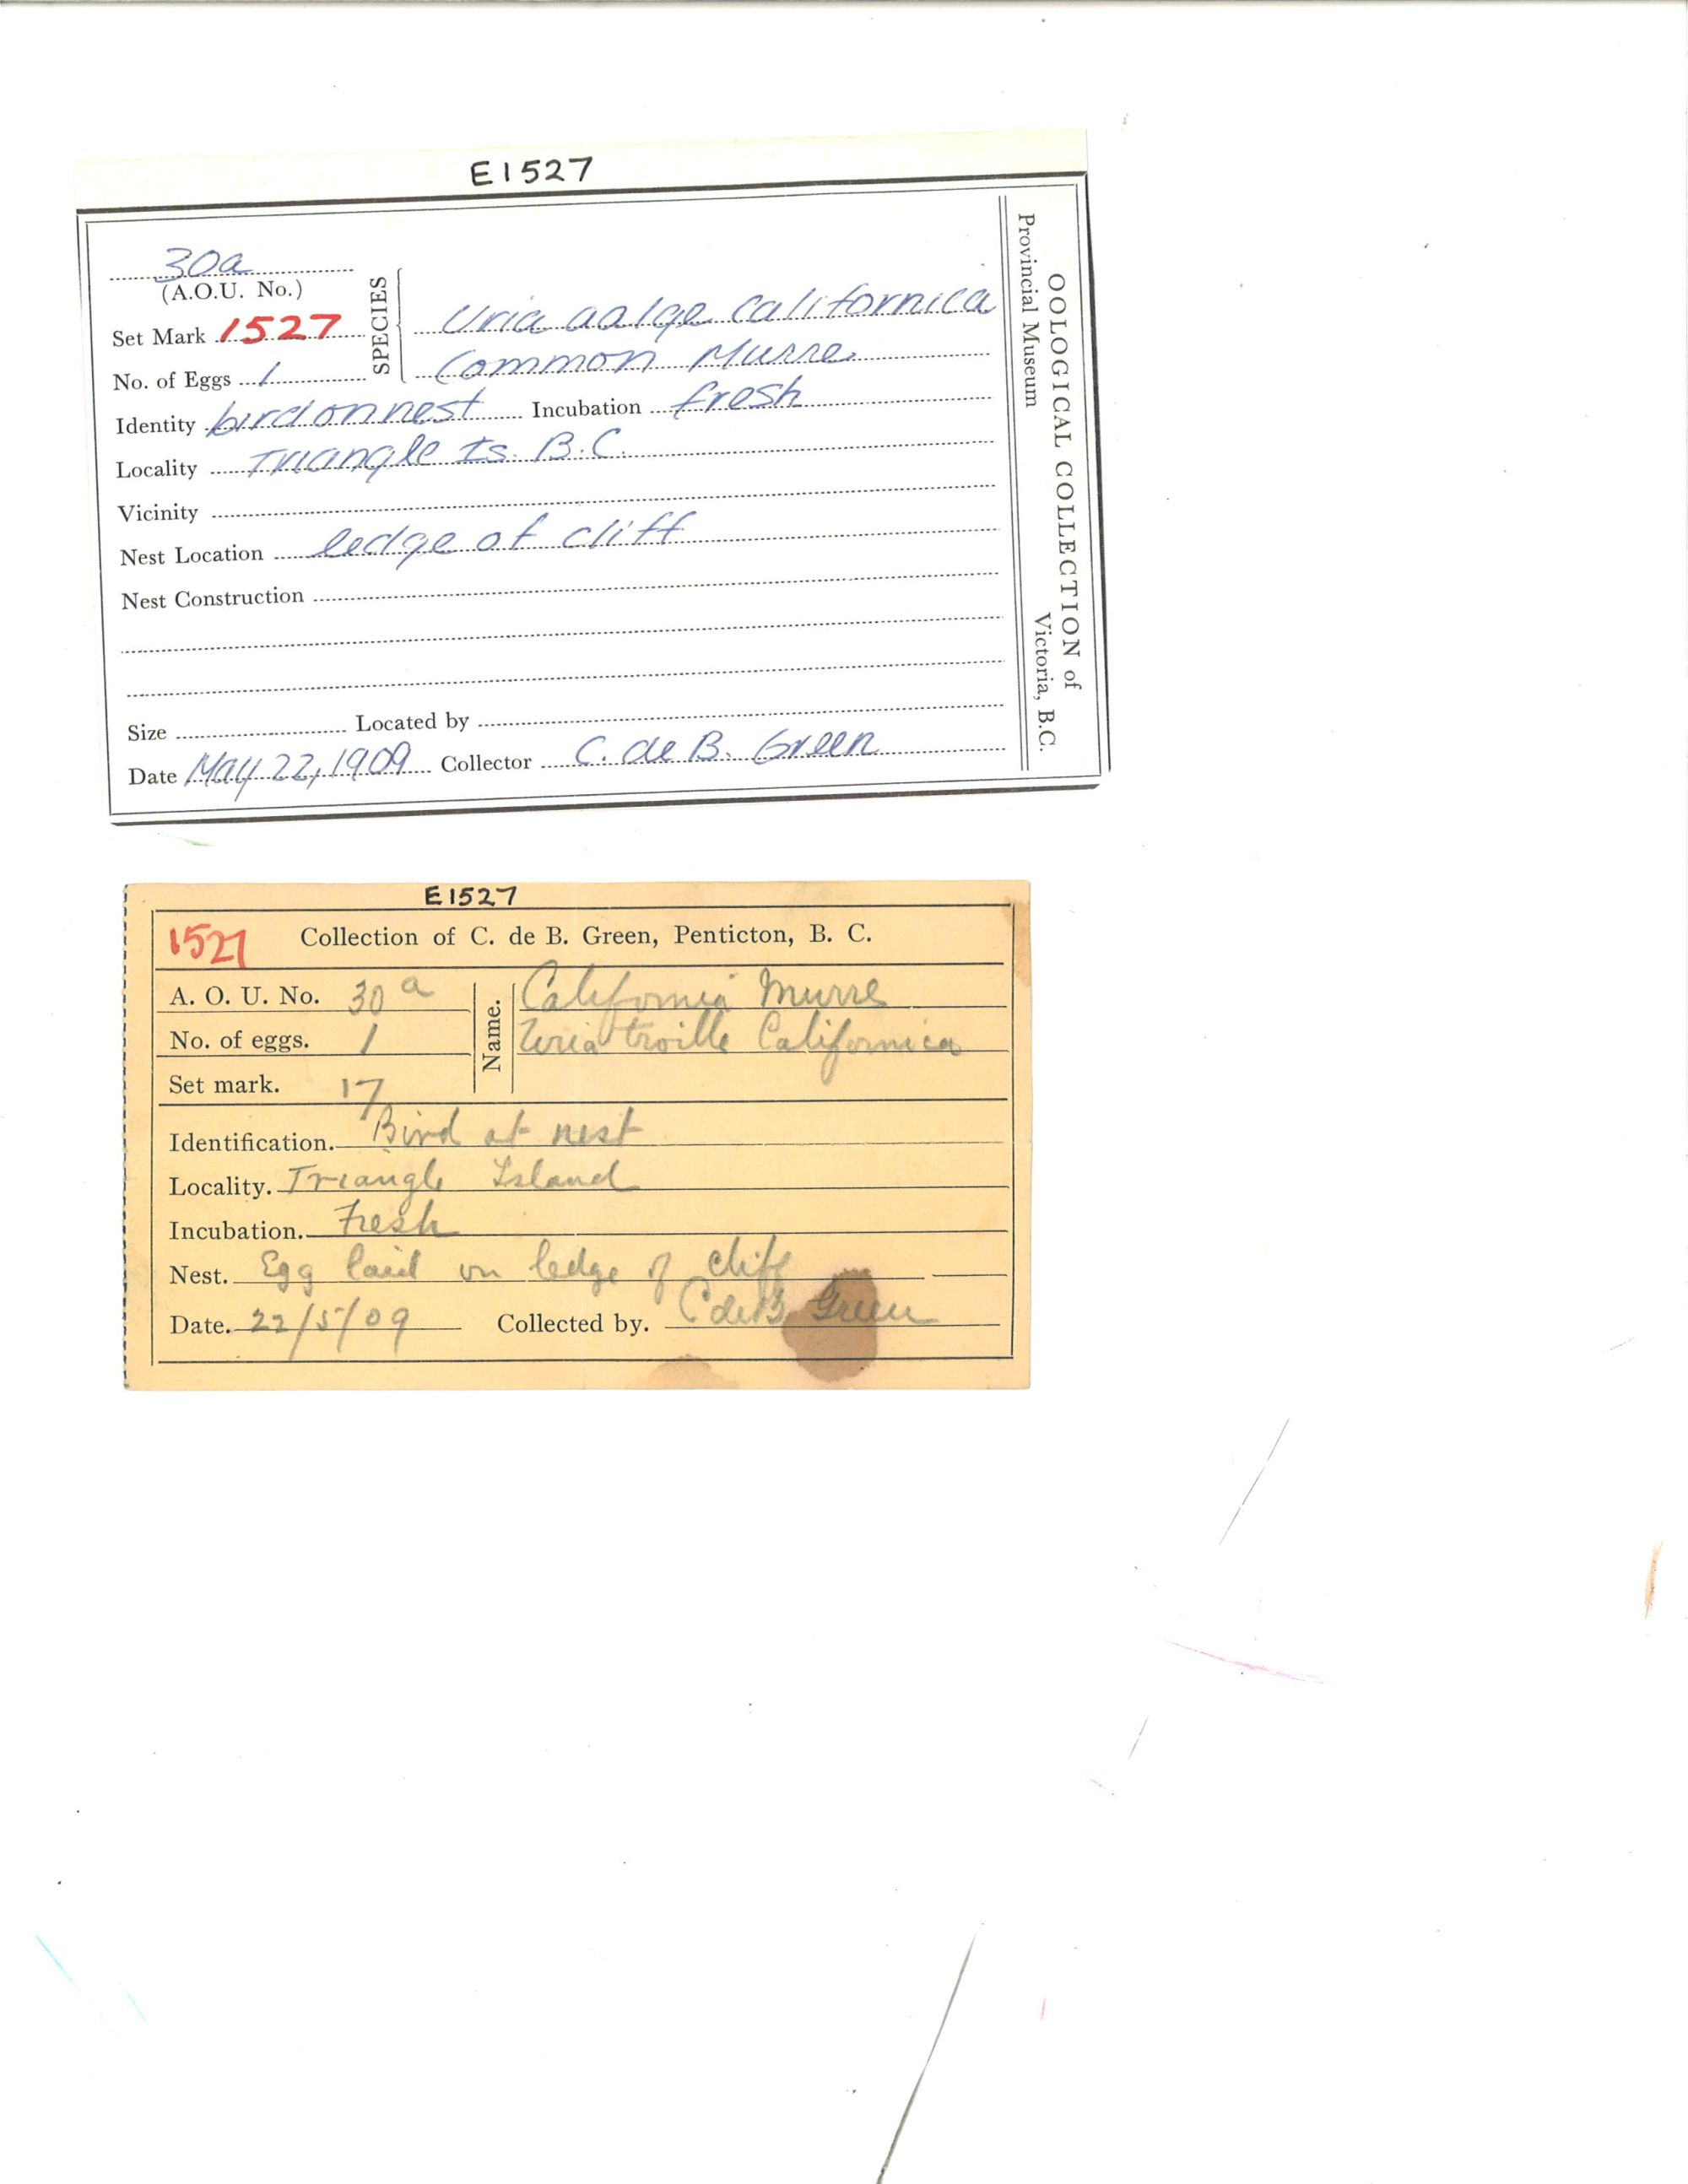 E1527
30a
(A.O.U. No.)
SPECIES
Set Mark 1527
Uria aalge californica
No. of Eggs 1
Common Murre
Identity bird on nest Incubation fresh
Locality Triangle Is. B.C.
Vicinity
Nest Location ledge of cliff
Nest Construction
Size Located by
Date May 22, 1909 Collector C. de B. Green
OOLOGICAL COLLECTION of
Provincial Museum Victoria, B.C.
E1527
1527 Collection of C. de B. Green, Penticton, B. C.
A. O. U. No. 30a
Name. California Murre
No. of eggs. 1
Uria troille Californica
Set mark. 17
Identification. Bird at nest
Locality. Triangle Island
Incubation. Fresh
Nest. Egg laid on ledge of cliff
Date. 22/5/09 Collected by. C de B Green